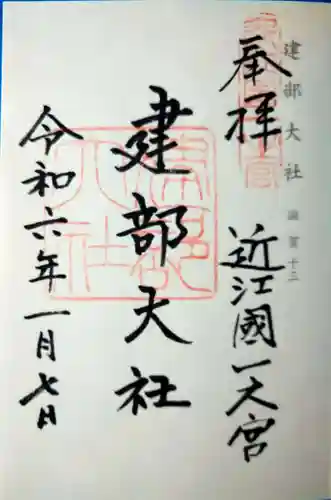 建部大社 滋賀十三
奉拝 近江國一之宮
建部大社
令和六年一月七日